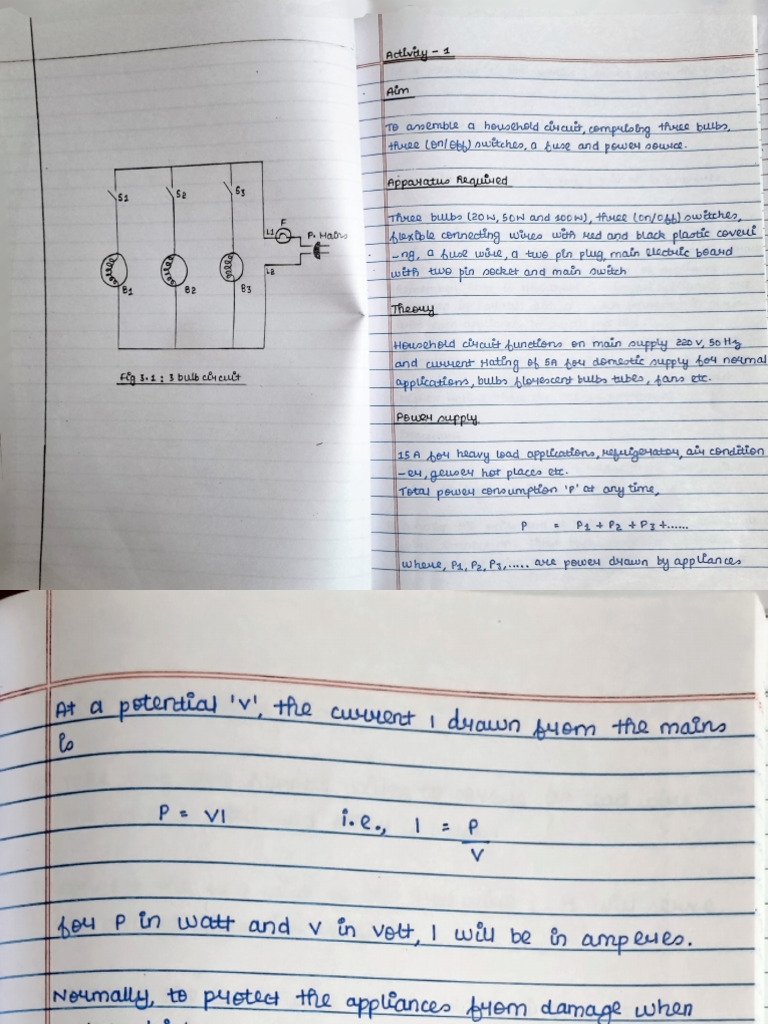 S1
S2
S3
F
L1
P. Mains
L2
B1
B2
B3
Fig 3.1 : 3 bulb circuit
Activity - 1
Aim
To assemble a household circuit, comprising three bulbs,
three (on/off) switches, a fuse and power source.
Apparatus Required
Three bulbs (20W, 50W and 100W), three (on/off) switches,
flexible connecting wires with red and black plastic coveri
-ng, a fuse wire, a two pin plug, main electric board
with two pin socket and main switch
Theory
Household circuit functions on main supply 220 V, 50 Hz
and current rating of 5A for domestic supply for normal
applications, bulbs florescent bulbs tubes, fans etc.
Power supply
15 A for heavy load applications, refrigerator, air condition
-er, geuser hot places etc.
Total power consumption 'P' at any time,
P = P1 + P2 + P3 +......
where, P1, P2, P3,..... are power drawn by appliances
At a potential 'V', the current I drawn from the mains
is
P = VI i.e., I = P
V
for P in watt and V in volt, I will be in amperes.
Normally, to protect the appliances from damage when